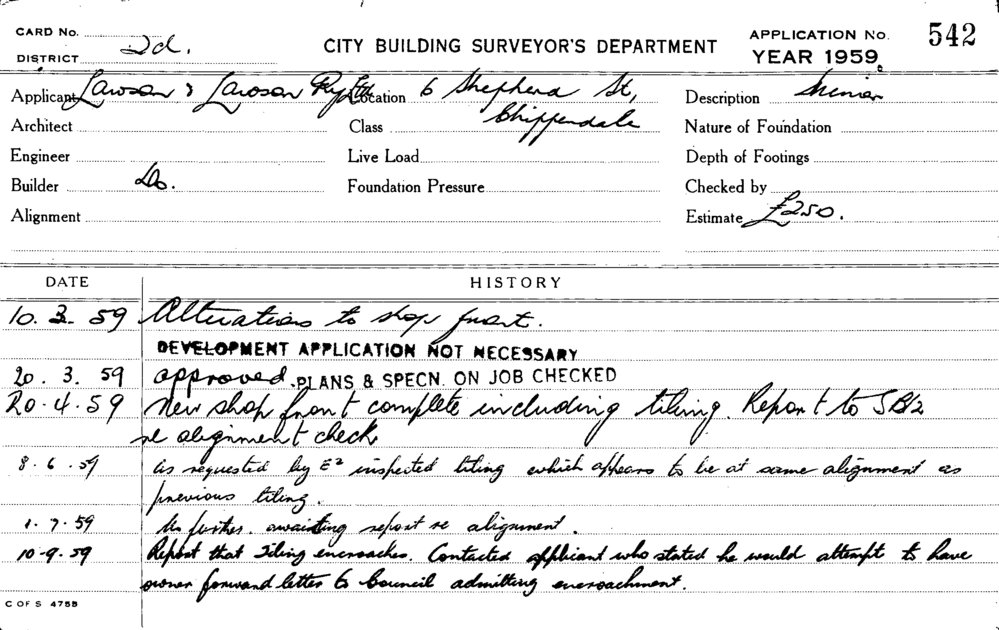 CARD No.
DISTRICT 2d.
CITY BUILDING SURVEYOR'S DEPARTMENT
APPLICATION No. 542
YEAR 1959
Applicant Lawson & Lawson Pty Ltd Location 6 Shepherd St, Description Minor
Architect Class Chippendale Nature of Foundation
Engineer Live Load Depth of Footings
Builder Do. Foundation Pressure Checked by
Alignment Estimate £250.
DATE HISTORY
10. 3. 59 Alterations to shop front.
DEVELOPMENT APPLICATION NOT NECESSARY
20. 3. 59 approved. PLANS & SPECN. ON JOB CHECKED
20. 4. 59 New shop front complete including tiling. Report to SB/2
re alignment check
8. 6. 59 As requested by E² inspected tiling which appears to be at same alignment as
previous tiling.
1. 7. 59 No further. awaiting report re alignment.
10-9. 59 Report that Tiling encroaches. Contacted applicant who stated he would attempt to have
owner forward letter to Council admitting encroachment.
C OF S 475B